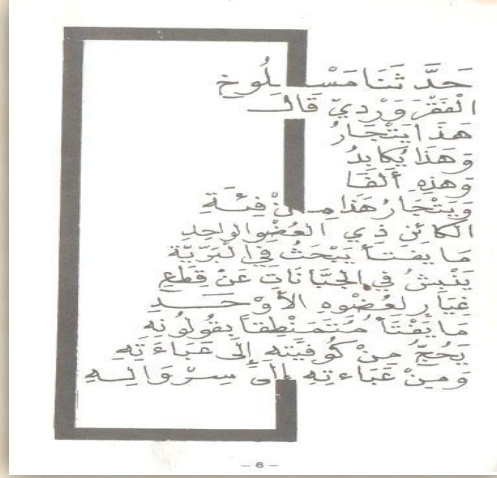 حَدَّ ثَنَا مَسْلُوخِ
الْفَقْرَوَرْدِيّ قَالَ
هَذَا يَنْتَجَارُ
وَهَذَا يُكَابِدُ
وَهَذِهِ أَلْفَا
وَيَنْتَجَارُ هَذَا مِنْ فِئَةِ
الْكَائِنِ ذِي الْعُضْوِ الْوَاحِدِ
مَا يَفْتَأُ يَبْحَثُ فِي الْبَرِّيَّةِ
يَنْبِشُ فِي الْجَبَّانَاتِ عَنْ قِطَعِ
غِيَارٍ لِعُضْوِهِ الْأَوْحَدِ
مَا يَفْتَأُ مُتَمَنْطِقاً بِفُولُونِهِ
يَحُجُّ مِنْ كُوفِيَّتِهِ إِلَى عَبَاءَتِهِ
وَمِنْ عَبَاءَتِهِ إِلَى سِرْوَالِهِ
– 6 –